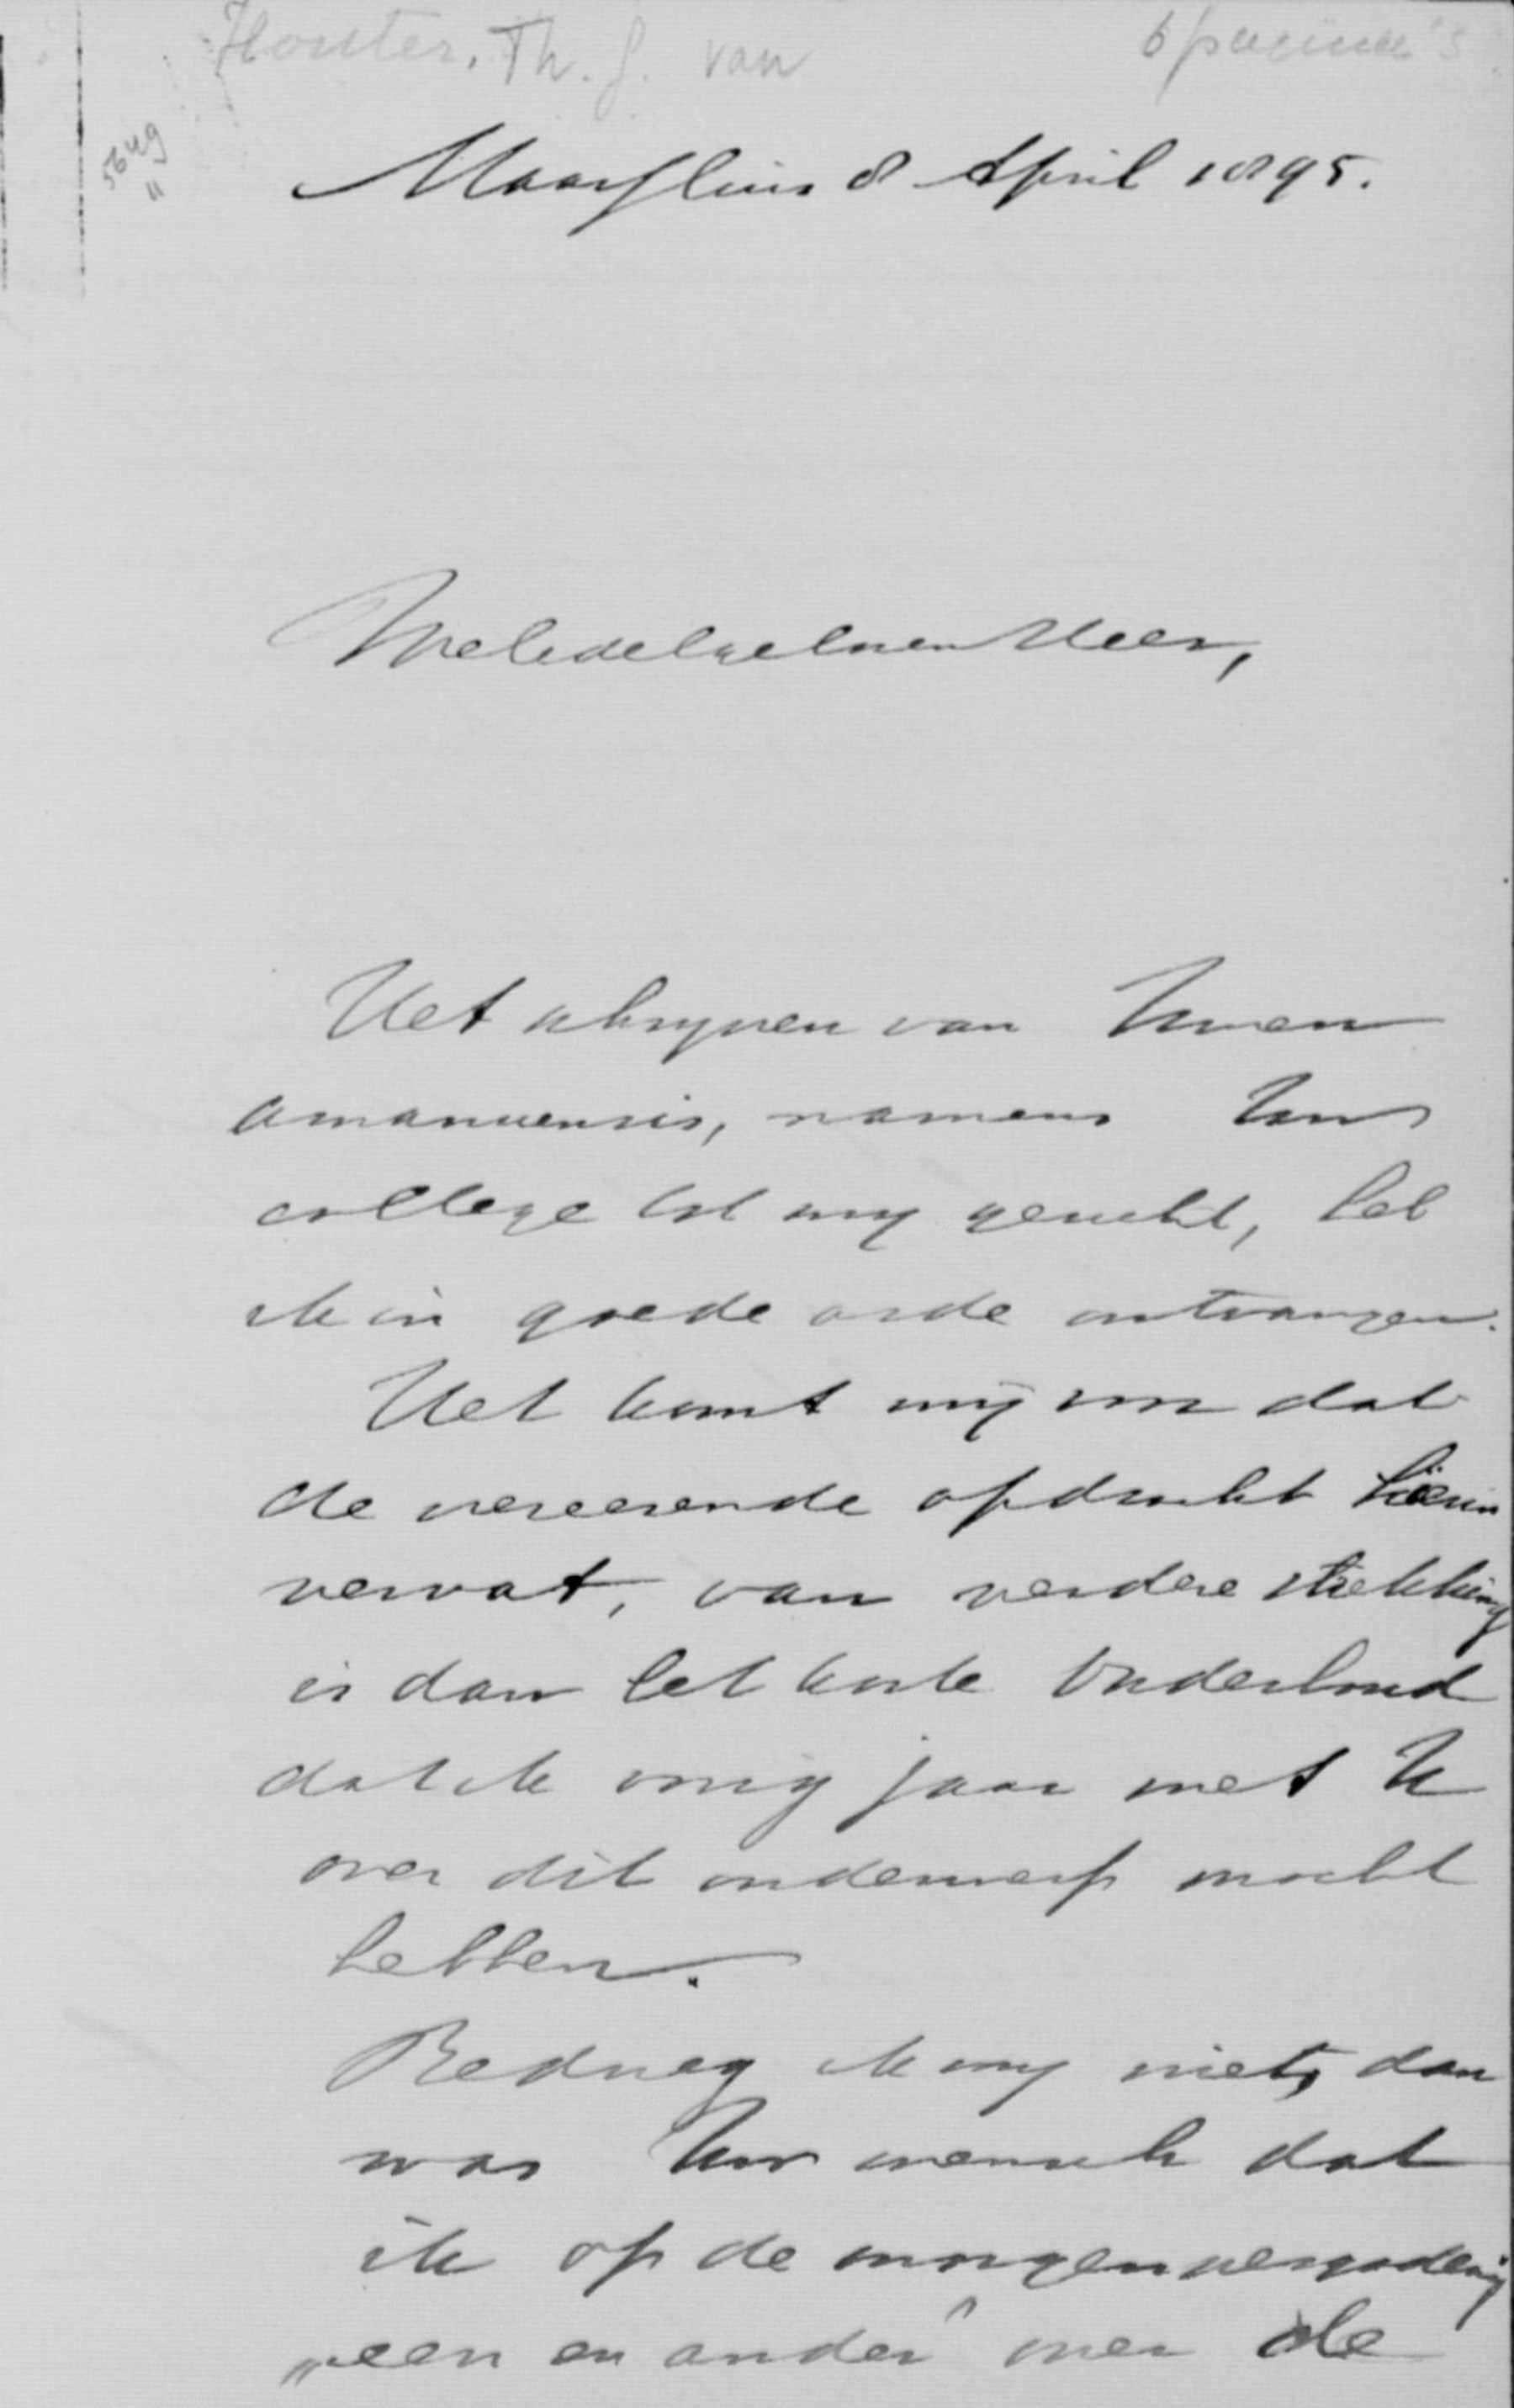 Houter, Th. J. van
6 pagina's
5649
"
Maassluis 8 April 1895.
Weledelgeboren Heer,
Het schrijven van Uwen
amanuensis, namens Uw
college tot mij gericht, heb
ik in goede orde ontvangen.
Het komt mij voor dat
de vereerende opdracht hierin
vervat, van verdere strekking
is dan het korte onderhoud
dat ik vorig jaar met U
over dit onderwerp mocht
hebben.
Bedrieg ik mij niet, dan
was Uw wensch dat
ik op de morgenvergadering
„een en ander" over de